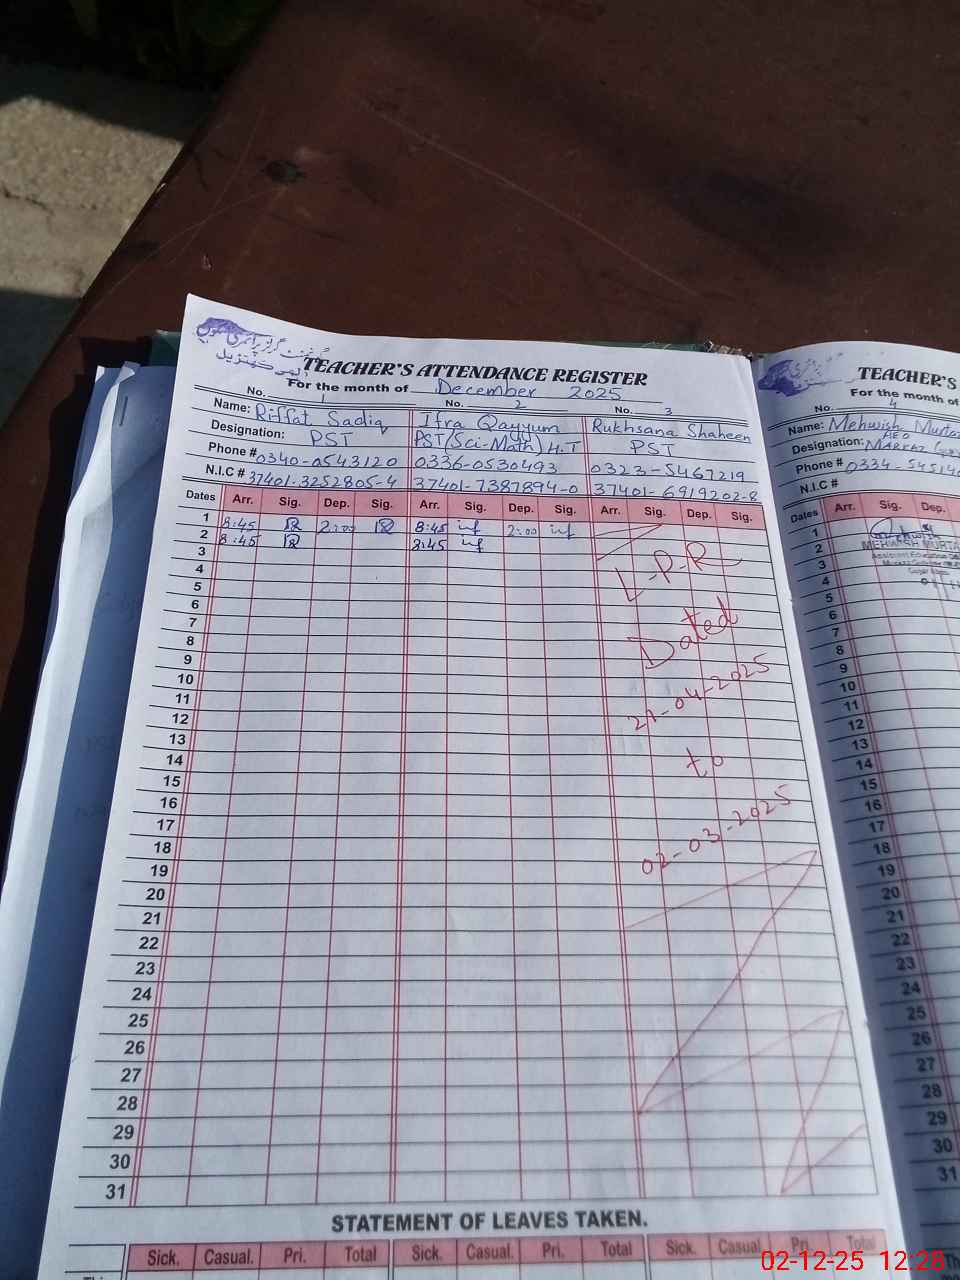 گورنمنٹ گرلز پرائمری سکول
TEACHER'S ATTENDANCE REGISTER
For the month of December 2025
No. 1 No. 2 No. 3
Name: Riffat Sadiq Ifra Qayyum Rukhsana Shaheen
Designation: PST PST(Sci-Math) H.T PST
Phone # 0340-0543120 0336-0530493 0323-5467219
N.I.C # 37401-3252805-4 37401-7387894-0 37401-6919202-8
Dates Arr. Sig. Dep. Sig. Arr. Sig. Dep. Sig. Arr. Sig. Dep. Sig.
1 8:45 2:00 8:45 2:00
2 8:45 8:45
3
4
5
6
7
8
9
10
11
12
13
14
15
16
17
18
19
20
21
22
23
24
25
26
27
28
29
30
31
L-P-R
Dated
21-04-2025
to
02-03-2025
STATEMENT OF LEAVES TAKEN.
Sick. Casual. Pri. Total Sick. Casual. Pri. Total Sick. Casual Pri. Total
TEACHER'S
For the month of
No. 4
Name: Mehwish Murtaz
Designation: AEO
MARKAZ
Phone # 0334-5451
N.I.C #
Dates Arr. Sig. Dep.
1
2 MEHWISH MURTA
3 Assistant Education
4
5
6
7
8
9
10
11
12
13
14
15
16
17
18
19
20
21
22
23
24
25
26
27
28
29
30
31
02-12-25 12:28